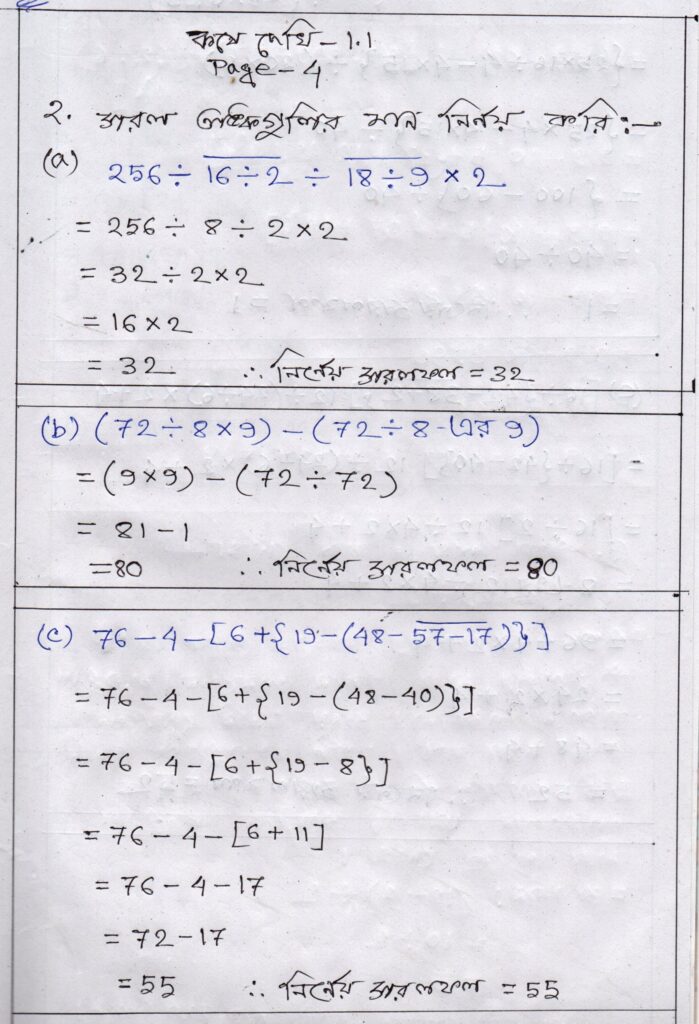 কষে দেখি - 1.1
Page - 4
২. সরল অঙ্কগুলির মান নির্ণয় করি :-
(a) 256 ÷ 1̅6̅ ̅÷̅ ̅2̅ ÷ 1̅8̅ ̅÷̅ ̅9̅ × 2
= 256 ÷ 8 ÷ 2 × 2
= 32 ÷ 2 × 2
= 16 × 2
= 32 ∴ নির্ণেয় সরলফল = 32
(b) (72 ÷ 8 × 9) - (72 ÷ 8-এর 9)
= (9 × 9) - (72 ÷ 72)
= 81 - 1
= 80 ∴ নির্ণেয় সরলফল = 80
(c) 76 - 4 - [6 + {19 - (48 - 5̅7̅ ̅-̅ ̅1̅7̅)}]
= 76 - 4 - [6 + {19 - (48 - 40)}]
= 76 - 4 - [6 + {19 - 8}]
= 76 - 4 - [6 + 11]
= 76 - 4 - 17
= 72 - 17
= 55 ∴ নির্ণেয় সরলফল = 55